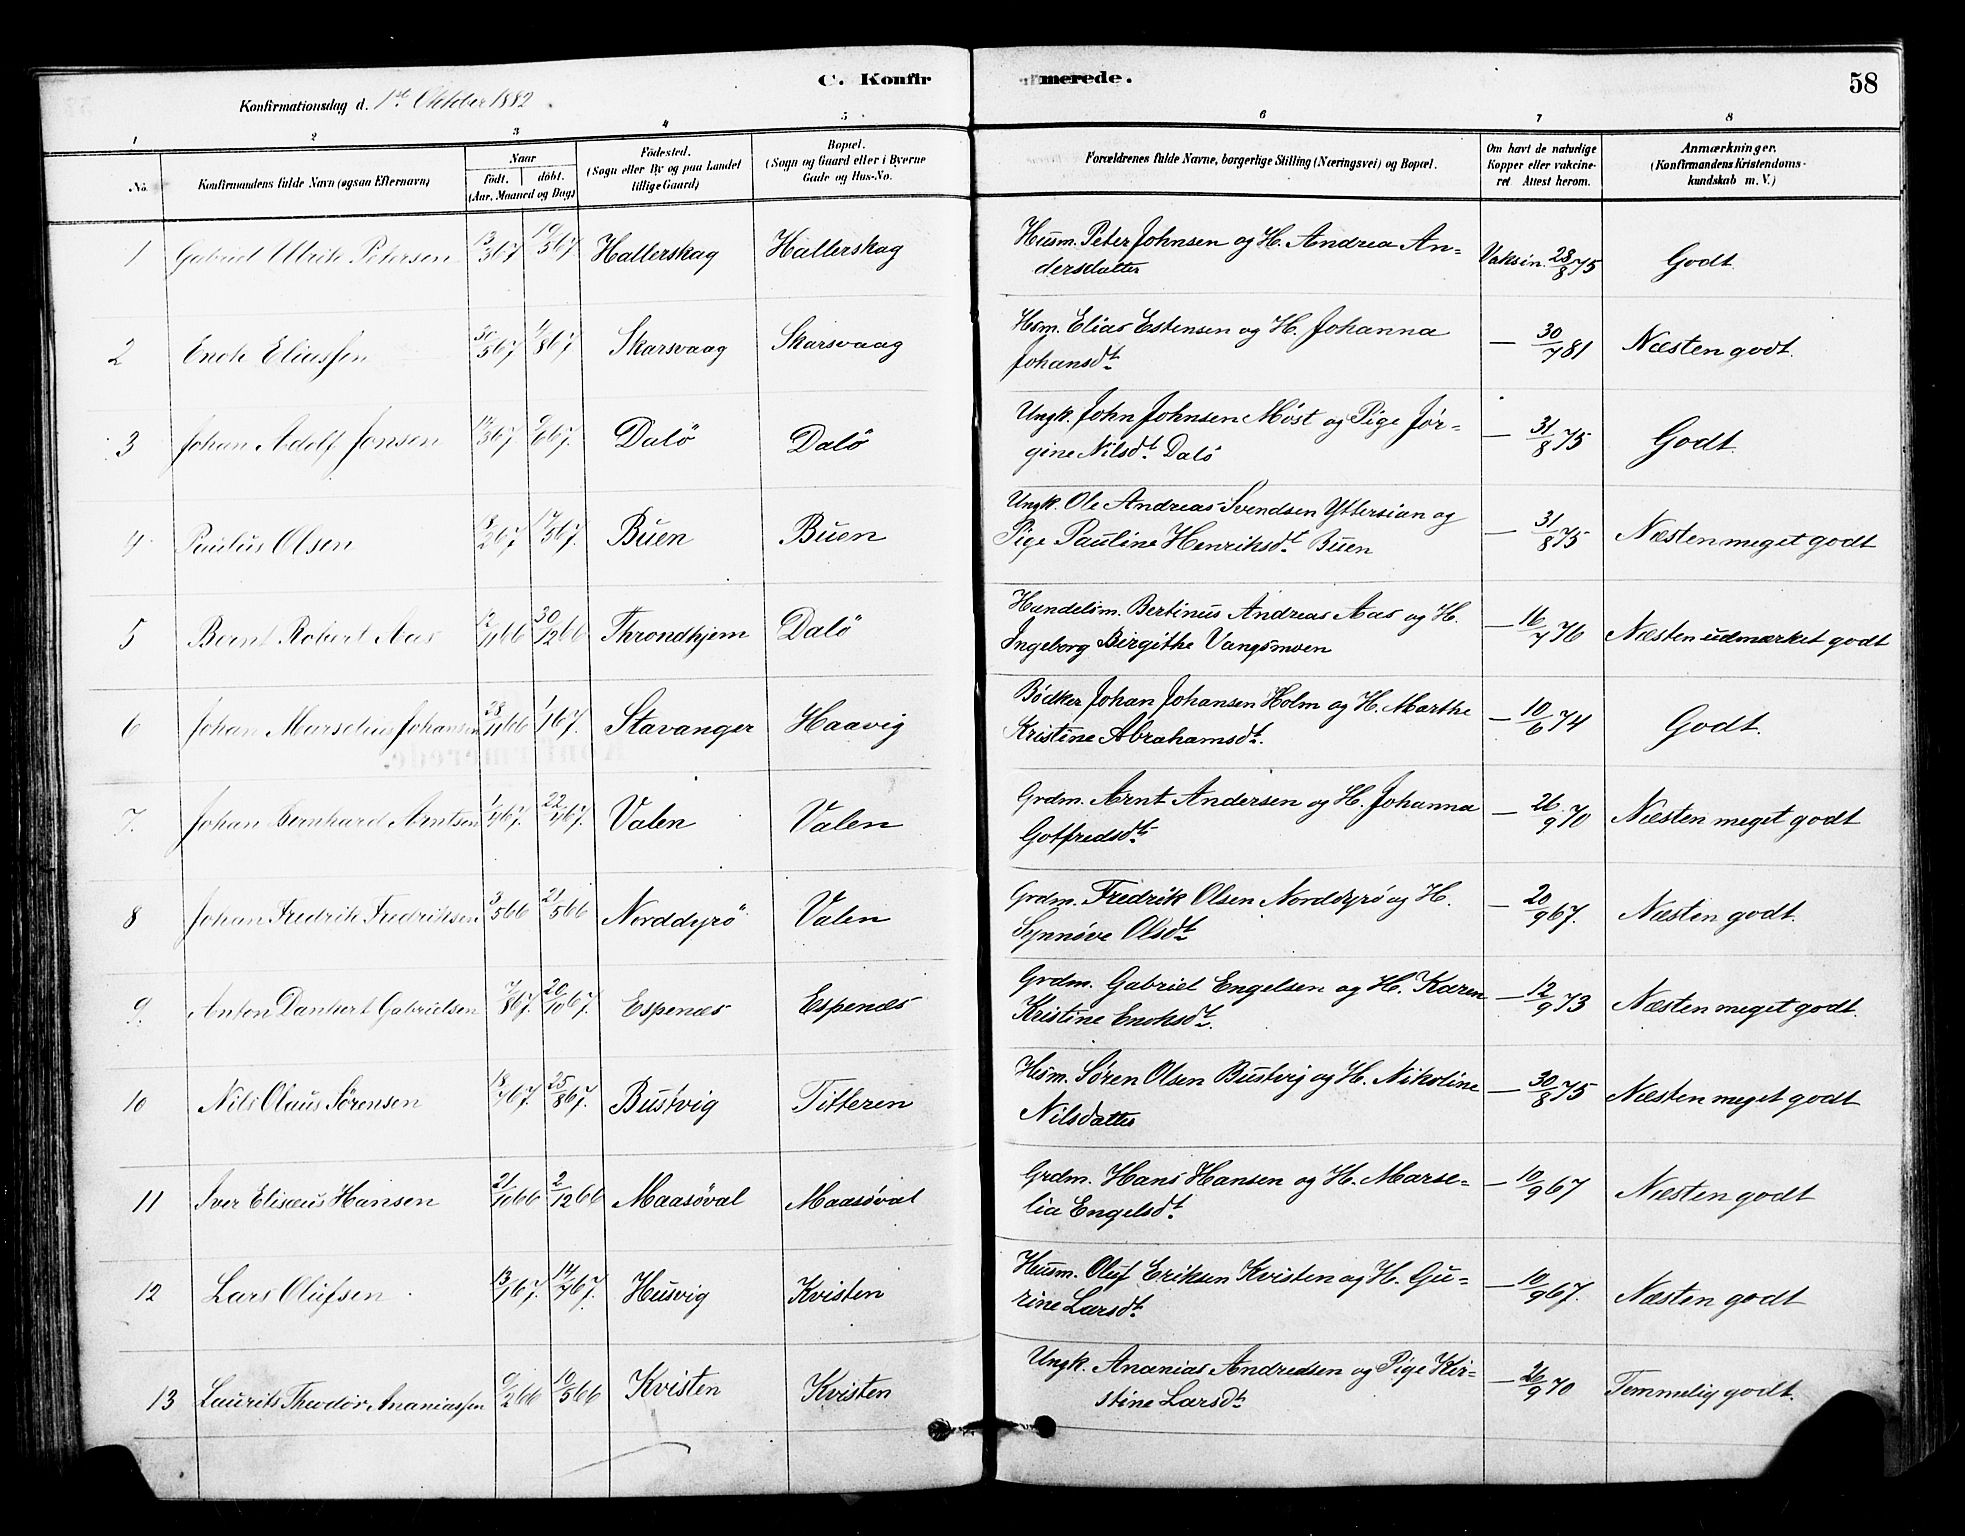 C. Konfirmerede. 58
Konfirmationsdag d. 1ste Oktober 1882
1 2 3 4 5 6 7 8
No. Konfirmandens fulde Navn (ogsaa Efternavn) Naar födt. döbt. (Aar, Maaned og Dag) Födested. (Sogn eller By og paa Landet tillige Gaard) Bopæl. (Sogn og Gaard eller i Byerne Gade og Hus-No. Forældrenes fulde Navne, borgerlige Stilling (Næringsvei) og Bopæl. Om havt de naturlige Kopper eller vakcineret Attest herom. Anmærkninger. (Konfirmandens Kristendomskundskab m. V.)
1 Gabriel Ulrik Petersen 13/3 67 19/5 67 Hallerskag Hallerskag Husm. Peter Johnsen og H. Andrea An-
dersdatter Vaksin. 28/8 75 Godt.
2 Enok Eliassen 30/5 67 4/8 67 Skarsvaag Skarsvaag Hsm. Elias Estensen og H. Johanna
Johansdt. — 30/7 81 Næsten godt.
3 Johan Adolf Jonsen /3 67 9/6 67. Dalö Dalö Ungk. John Johnsen Möst og Pige Jör-
gine Nilsdt. Dalö — 31/8 75 Godt.
4 Paulus Olsen 8/2 67 17/5 67. Buen Buen Ungk. Ole Andreas Svendsen Yttersian og
Pige Pauline Henriksdt. Buen — 31/8 75 Næsten meget godt
5 Bernt Robert Aas /11 66 30/12 66 Throndhjem Dalö Handelsm. Bertinus Andreas Aas og H.
Ingeborg Birgithe Vangsmoen — 16/7 76 Næsten udmærket godt
6 Johan Marselius Johansen 28/11 66 1/1 67. Stavanger Haavig Bödker Johan Johansen Holm og H. Marthe
Kristine Abrahamsdt. — 10/6 74 Godt.
7. Johan Bernhard Arntsen 1/4 67. 22/4 67. Valen Valen Grdm. Arnt Andersen og H. Johanna
Gotfredsdt. — 26/9 70 Næsten meget godt
8 Johan Fredrik Fredriksen 3/5 66 21/5 66 Norddyrö Valen Grdm. Fredrik Olsen Norddyrö og H.
Synnöve Olsdt — 20/9 67. Næsten godt.
9. Anton Dankert Gabrielsen 7/8 67. 20/10 67. Espenæs Espenæs Grdm. Gabriel Engelsen og H. Karen
Kristine Enoksdt. — 12/9 73 Næsten meget godt.
10 Nils Olaus Sörensen 18/4 67. 25/8 67. Bustvig Titteren Hsm. Sören Olsen Bustvig og H. Nikoline
Nilsdatter — 30/8 75 Næsten meget godt
11 Iver Elisæus Hansen 21/10 66 2/12 66 Maasöval Maasöval Grdm. Hans Hansen og H. Marse-
lia Engelsdt. — 10/9 67 Næsten godt
12 Lars Olufsen 13/1 67. 14/4 67. Husvig Kvisten Husm. Oluf Eriksen Kvisten og H. Gu-
rine Larsdt. — 10/9 67. Næsten godt
13 Laurits Theodor Ananiassen 9/2 66 10/5 66 Kvisten Kvisten Ungk. Ananias Andreasen og Pige Kir-
stine Larsdt. — 26/9 70 Temmelig godt.